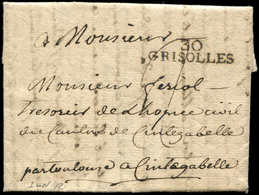 a Monsieur
30
GRISOLLES
Monsieur feriol
Tresorier de L'hospice civil
du Canton de Cintegabelle
par toulouze a Cintegabelle